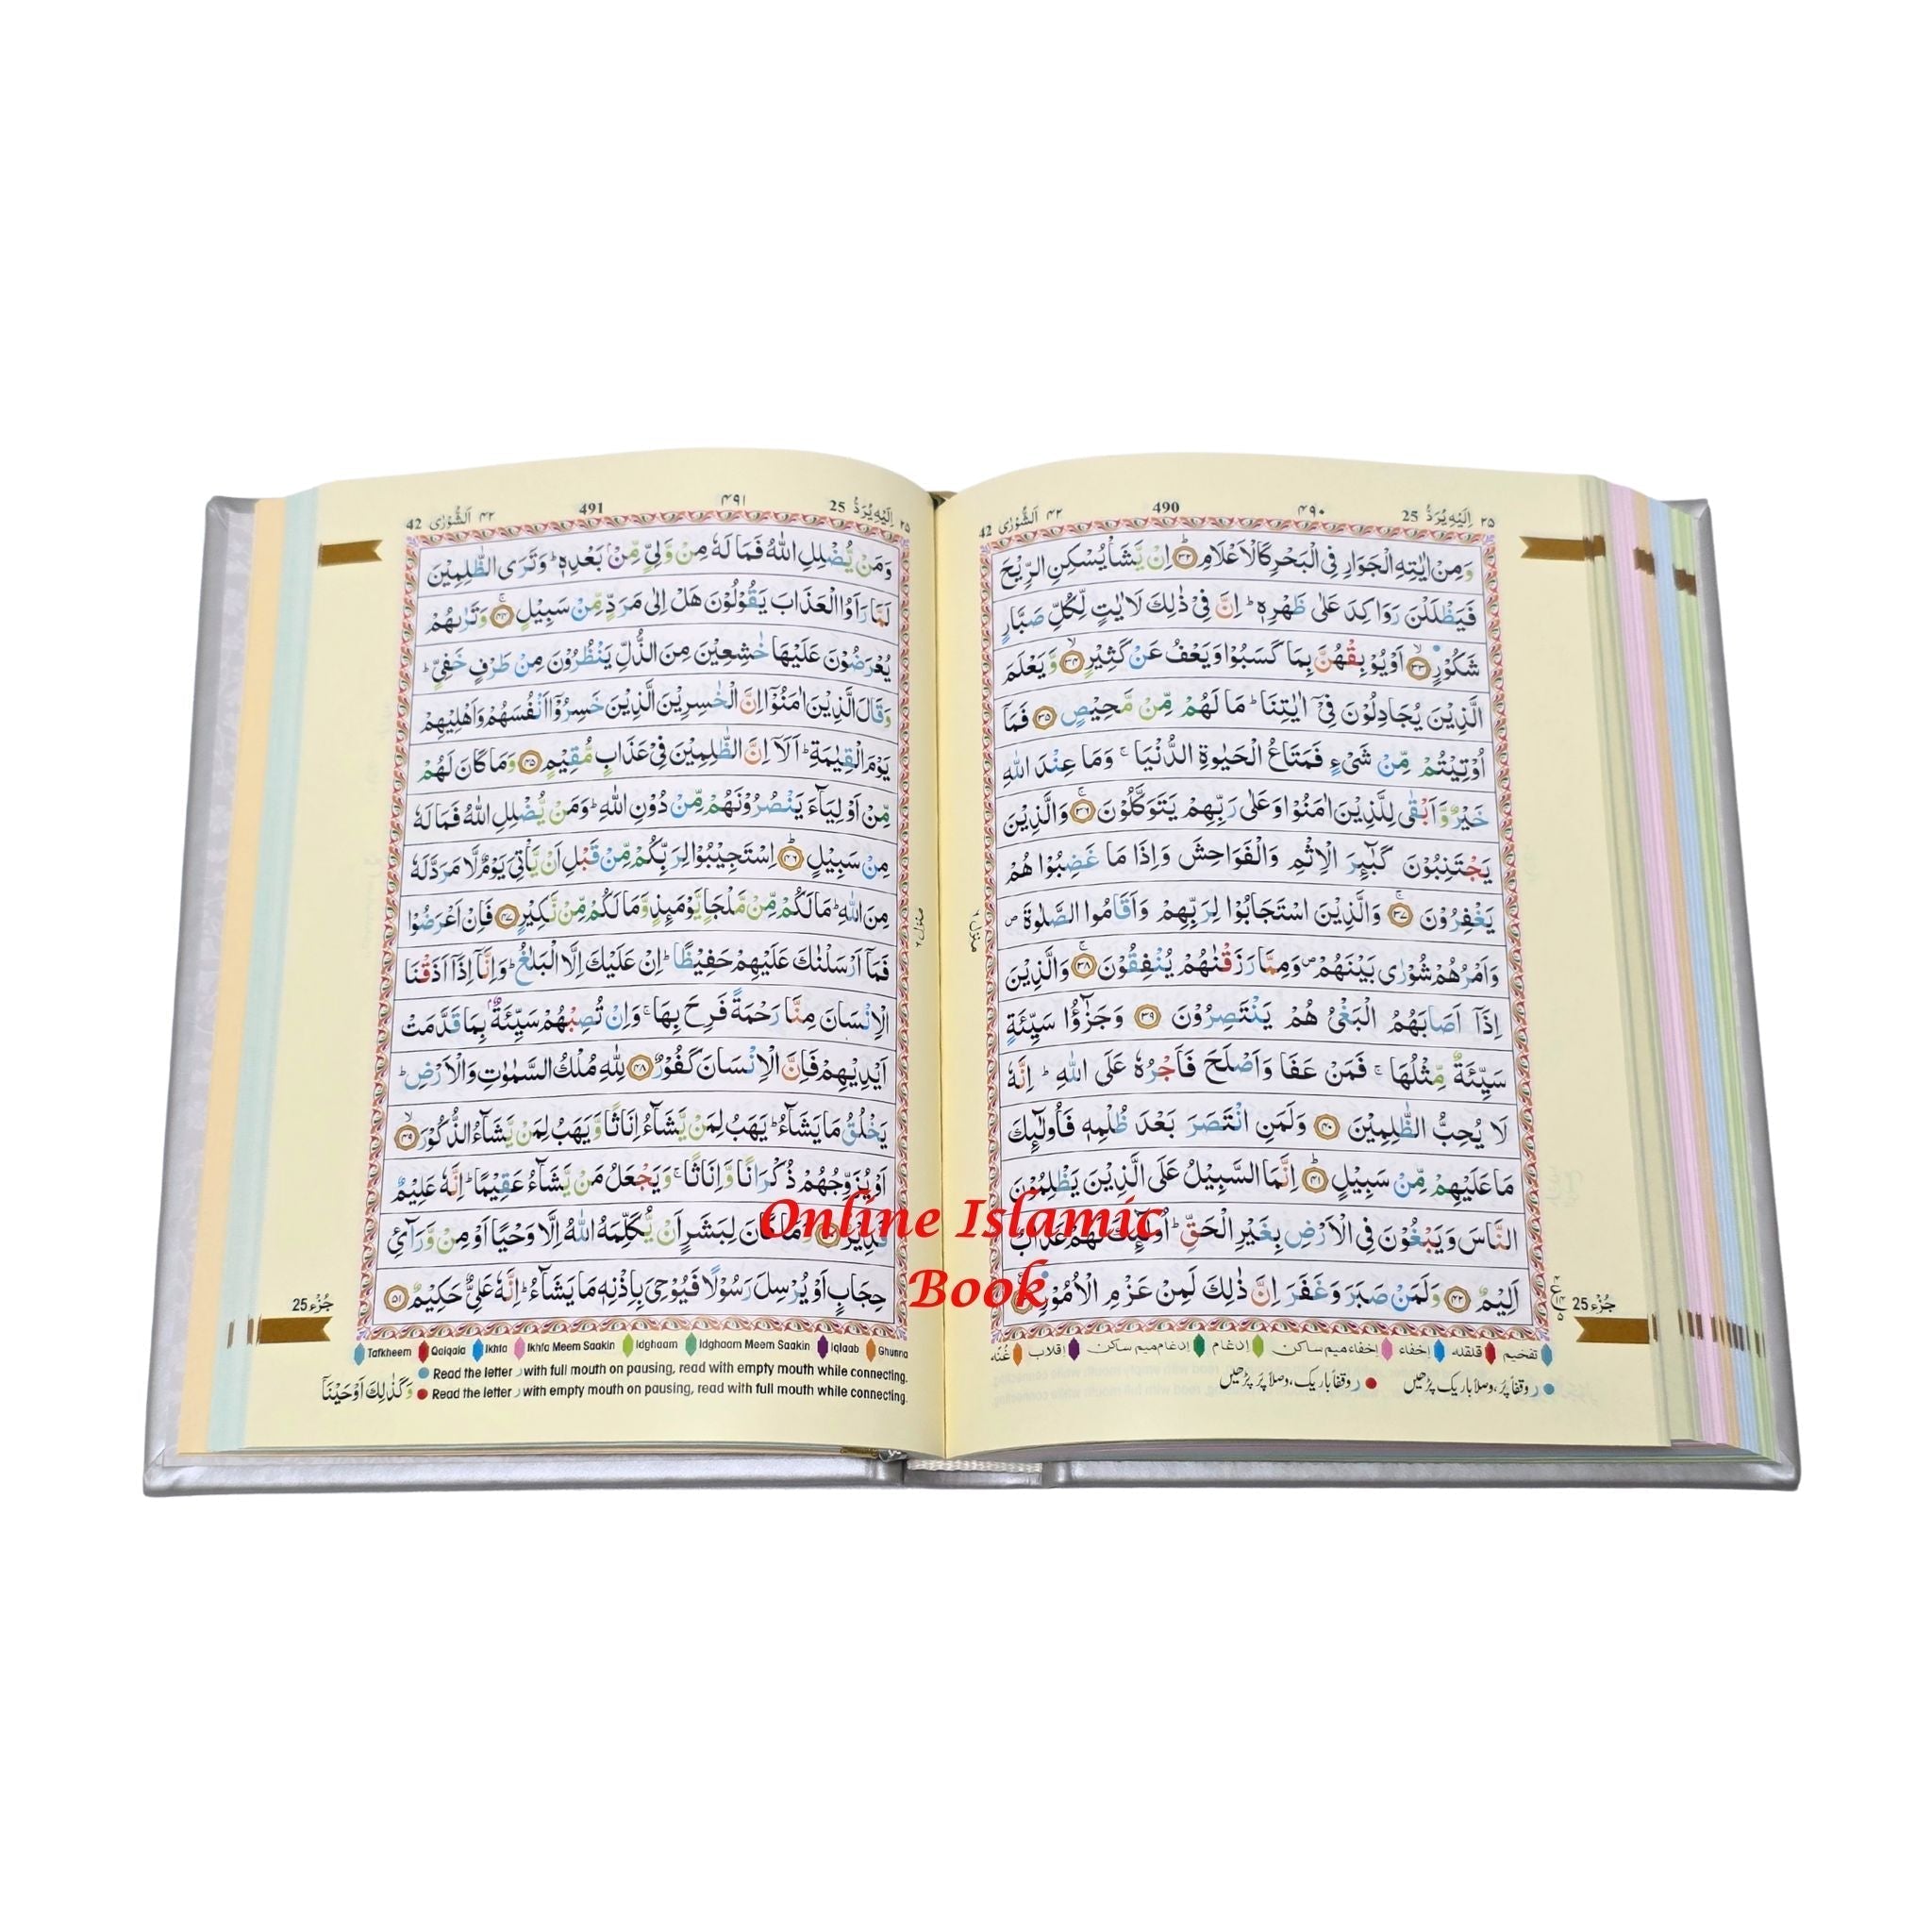 ٢٥ اِلَيْهِ يُرَدُّ 25
٤٩٠
490
٤٢ اَلشُّوْرٰى 42
وَمِنْ اٰيٰتِهِ الْجَوَارِ فِى الْبَحْرِ كَالْاَعْلَامِ ۝٣٢ اِنْ يَّشَاْ يُسْكِنِ الرِّيْحَ
فَيَظْلَلْنَ رَوَاكِدَ عَلٰى ظَهْرِهٖ ؕ اِنَّ فِىْ ذٰلِكَ لَاٰيٰتٍ لِّكُلِّ صَبَّارٍ
شَكُوْرٍ ۝٣٣ اَوْ يُوْبِقْهُنَّ بِمَا كَسَبُوْا وَيَعْفُ عَنْ كَثِيْرٍ ۝٣٤ وَّيَعْلَمَ
الَّذِيْنَ يُجَادِلُوْنَ فِىْۤ اٰيٰتِنَا ؕ مَا لَهُمْ مِّنْ مَّحِيْصٍ ۝٣٥ فَمَاۤ
اُوْتِيْتُمْ مِّنْ شَىْءٍ فَمَتَاعُ الْحَيٰوةِ الدُّنْيَا ۚ وَمَا عِنْدَ اللّٰهِ
خَيْرٌ وَّاَبْقٰى لِلَّذِيْنَ اٰمَنُوْا وَعَلٰى رَبِّهِمْ يَتَوَكَّلُوْنَ ۝٣٦ وَالَّذِيْنَ
يَجْتَنِبُوْنَ كَبٰٓئِرَ الْاِثْمِ وَالْفَوَاحِشَ وَاِذَا مَا غَضِبُوْا هُمْ
يَغْفِرُوْنَ ۝٣٧ وَالَّذِيْنَ اسْتَجَابُوْا لِرَبِّهِمْ وَاَقَامُوا الصَّلٰوةَ ۖ
وَاَمْرُهُمْ شُوْرٰى بَيْنَهُمْ ۖ وَمِمَّا رَزَقْنٰهُمْ يُنْفِقُوْنَ ۝٣٨ وَالَّذِيْنَ
اِذَاۤ اَصَابَهُمُ الْبَغْىُ هُمْ يَنْتَصِرُوْنَ ۝٣٩ وَجَزٰٓؤُا سَيِّئَةٍ
سَيِّئَةٌ مِّثْلُهَا ۚ فَمَنْ عَفَا وَاَصْلَحَ فَاَجْرُهٗ عَلَى اللّٰهِ ؕ اِنَّهٗ
لَا يُحِبُّ الظّٰلِمِيْنَ ۝٤٠ وَلَمَنِ انْتَصَرَ بَعْدَ ظُلْمِهٖ فَاُولٰٓئِكَ
مَا عَلَيْهِمْ مِّنْ سَبِيْلٍ ۝٤١ اِنَّمَا السَّبِيْلُ عَلَى الَّذِيْنَ يَظْلِمُوْنَ
النَّاسَ وَيَبْغُوْنَ فِى الْاَرْضِ بِغَيْرِ الْحَقِّ ؕ اُولٰٓئِكَ لَهُمْ عَذَابٌ
اَلِيْمٌ ۝٤٢ وَلَمَنْ صَبَرَ وَغَفَرَ اِنَّ ذٰلِكَ لَمِنْ عَزْمِ الْاُمُوْرِ
جُزْء 25
منزل ٦
تفخیم قلقله إخفاء إخفاء میم ساکن إدغام إدغام میم ساکن إقلاب غُنّه
ر وقفاً پُر، وصلاً باریک پڑھیں ر وقفاً باریک، وصلاً پُر پڑھیں
٢٥ اِلَيْهِ يُرَدُّ 25
٤٩١
491
٤٢ اَلشُّوْرٰى 42
وَمَنْ يُّضْلِلِ اللّٰهُ فَمَا لَهٗ مِنْ وَّلِىٍّ مِّنْۢ بَعْدِهٖ ؕ وَتَرَى الظّٰلِمِيْنَ
لَمَّا رَاَوُا الْعَذَابَ يَقُوْلُوْنَ هَلْ اِلٰى مَرَدٍّ مِّنْ سَبِيْلٍ ۝٤٤ وَتَرٰىهُمْ
يُعْرَضُوْنَ عَلَيْهَا خٰشِعِيْنَ مِنَ الذُّلِّ يَنْظُرُوْنَ مِنْ طَرْفٍ خَفِىٍّ ؕ
وَقَالَ الَّذِيْنَ اٰمَنُوْۤا اِنَّ الْخٰسِرِيْنَ الَّذِيْنَ خَسِرُوْۤا اَنْفُسَهُمْ وَاَهْلِيْهِمْ
يَوْمَ الْقِيٰمَةِ ؕ اَلَاۤ اِنَّ الظّٰلِمِيْنَ فِىْ عَذَابٍ مُّقِيْمٍ ۝٤٥ وَمَا كَانَ لَهُمْ
مِّنْ اَوْلِيَآءَ يَنْصُرُوْنَهُمْ مِّنْ دُوْنِ اللّٰهِ ؕ وَمَنْ يُّضْلِلِ اللّٰهُ فَمَا لَهٗ
مِنْ سَبِيْلٍ ۝٤٦ اِسْتَجِيْبُوْا لِرَبِّكُمْ مِّنْ قَبْلِ اَنْ يَّاْتِىَ يَوْمٌ لَّا مَرَدَّ لَهٗ
مِنَ اللّٰهِ ؕ مَا لَكُمْ مِّنْ مَّلْجَاٍ يَّوْمَئِذٍ وَّمَا لَكُمْ مِّنْ نَّكِيْرٍ ۝٤٧ فَاِنْ اَعْرَضُوْا
فَمَاۤ اَرْسَلْنٰكَ عَلَيْهِمْ حَفِيْظًا ؕ اِنْ عَلَيْكَ اِلَّا الْبَلٰغُ ؕ وَاِنَّاۤ اِذَاۤ اَذَقْنَا
الْاِنْسَانَ مِنَّا رَحْمَةً فَرِحَ بِهَا ۚ وَاِنْ تُصِبْهُمْ سَيِّئَةٌۢ بِمَا قَدَّمَتْ
اَيْدِيْهِمْ فَاِنَّ الْاِنْسَانَ كَفُوْرٌ ۝٤٨ لِلّٰهِ مُلْكُ السَّمٰوٰتِ وَالْاَرْضِ ؕ
يَخْلُقُ مَا يَشَآءُ ؕ يَهَبُ لِمَنْ يَّشَآءُ اِنَاثًا وَّيَهَبُ لِمَنْ يَّشَآءُ الذُّكُوْرَ ۝٤٩
اَوْ يُزَوِّجُهُمْ ذُكْرَانًا وَّاِنَاثًا ۚ وَيَجْعَلُ مَنْ يَّشَآءُ عَقِيْمًا ؕ اِنَّهٗ عَلِيْمٌ
قَدِيْرٌ وَمَا كَانَ لِبَشَرٍ اَنْ يُّكَلِّمَهُ اللّٰهُ اِلَّا وَحْيًا اَوْ مِنْ وَّرَآئِ
حِجَابٍ اَوْ يُرْسِلَ رَسُوْلًا فَيُوْحِىَ بِاِذْنِهٖ مَا يَشَآءُ ؕ اِنَّهٗ عَلِىٌّ حَكِيْمٌ ۝٥١
جُزْء 25
منزل ٦
Tafkheem Qalqala Ikhfa Ikhfa Meem Saakin Idghaam Idghaam Meem Saakin Iqlaab Ghunna
Read the letter ر with full mouth on pausing, read with empty mouth while connecting.
Read the letter ر with empty mouth on pausing, read with full mouth while connecting.
وَكَذٰلِكَ اَوْحَيْنَاۤ
Online Islamic
Book